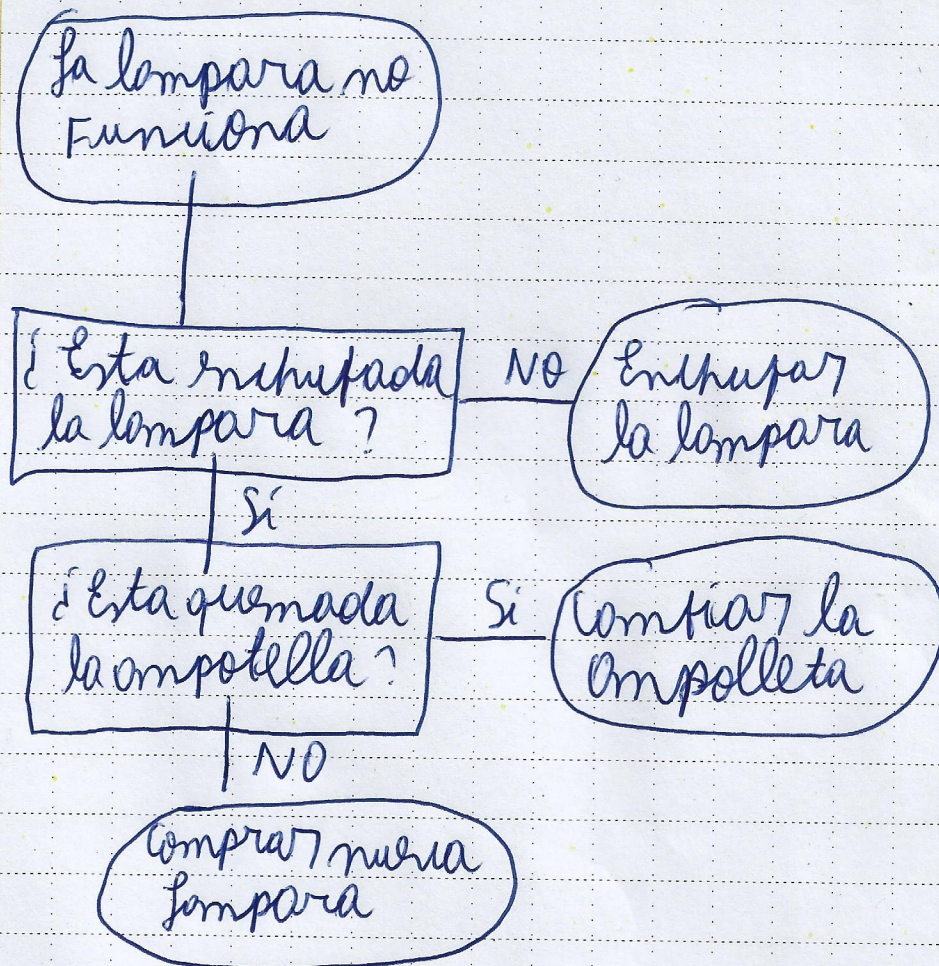 La lampara no
Funciona
¿Esta enchufada
la lampara?
NO
Enchufar
la lampara
Sí
¿Esta quemada
la ampotella?
Si
Cambiar la
Ampolleta
NO
Comprar nueva
Lampara